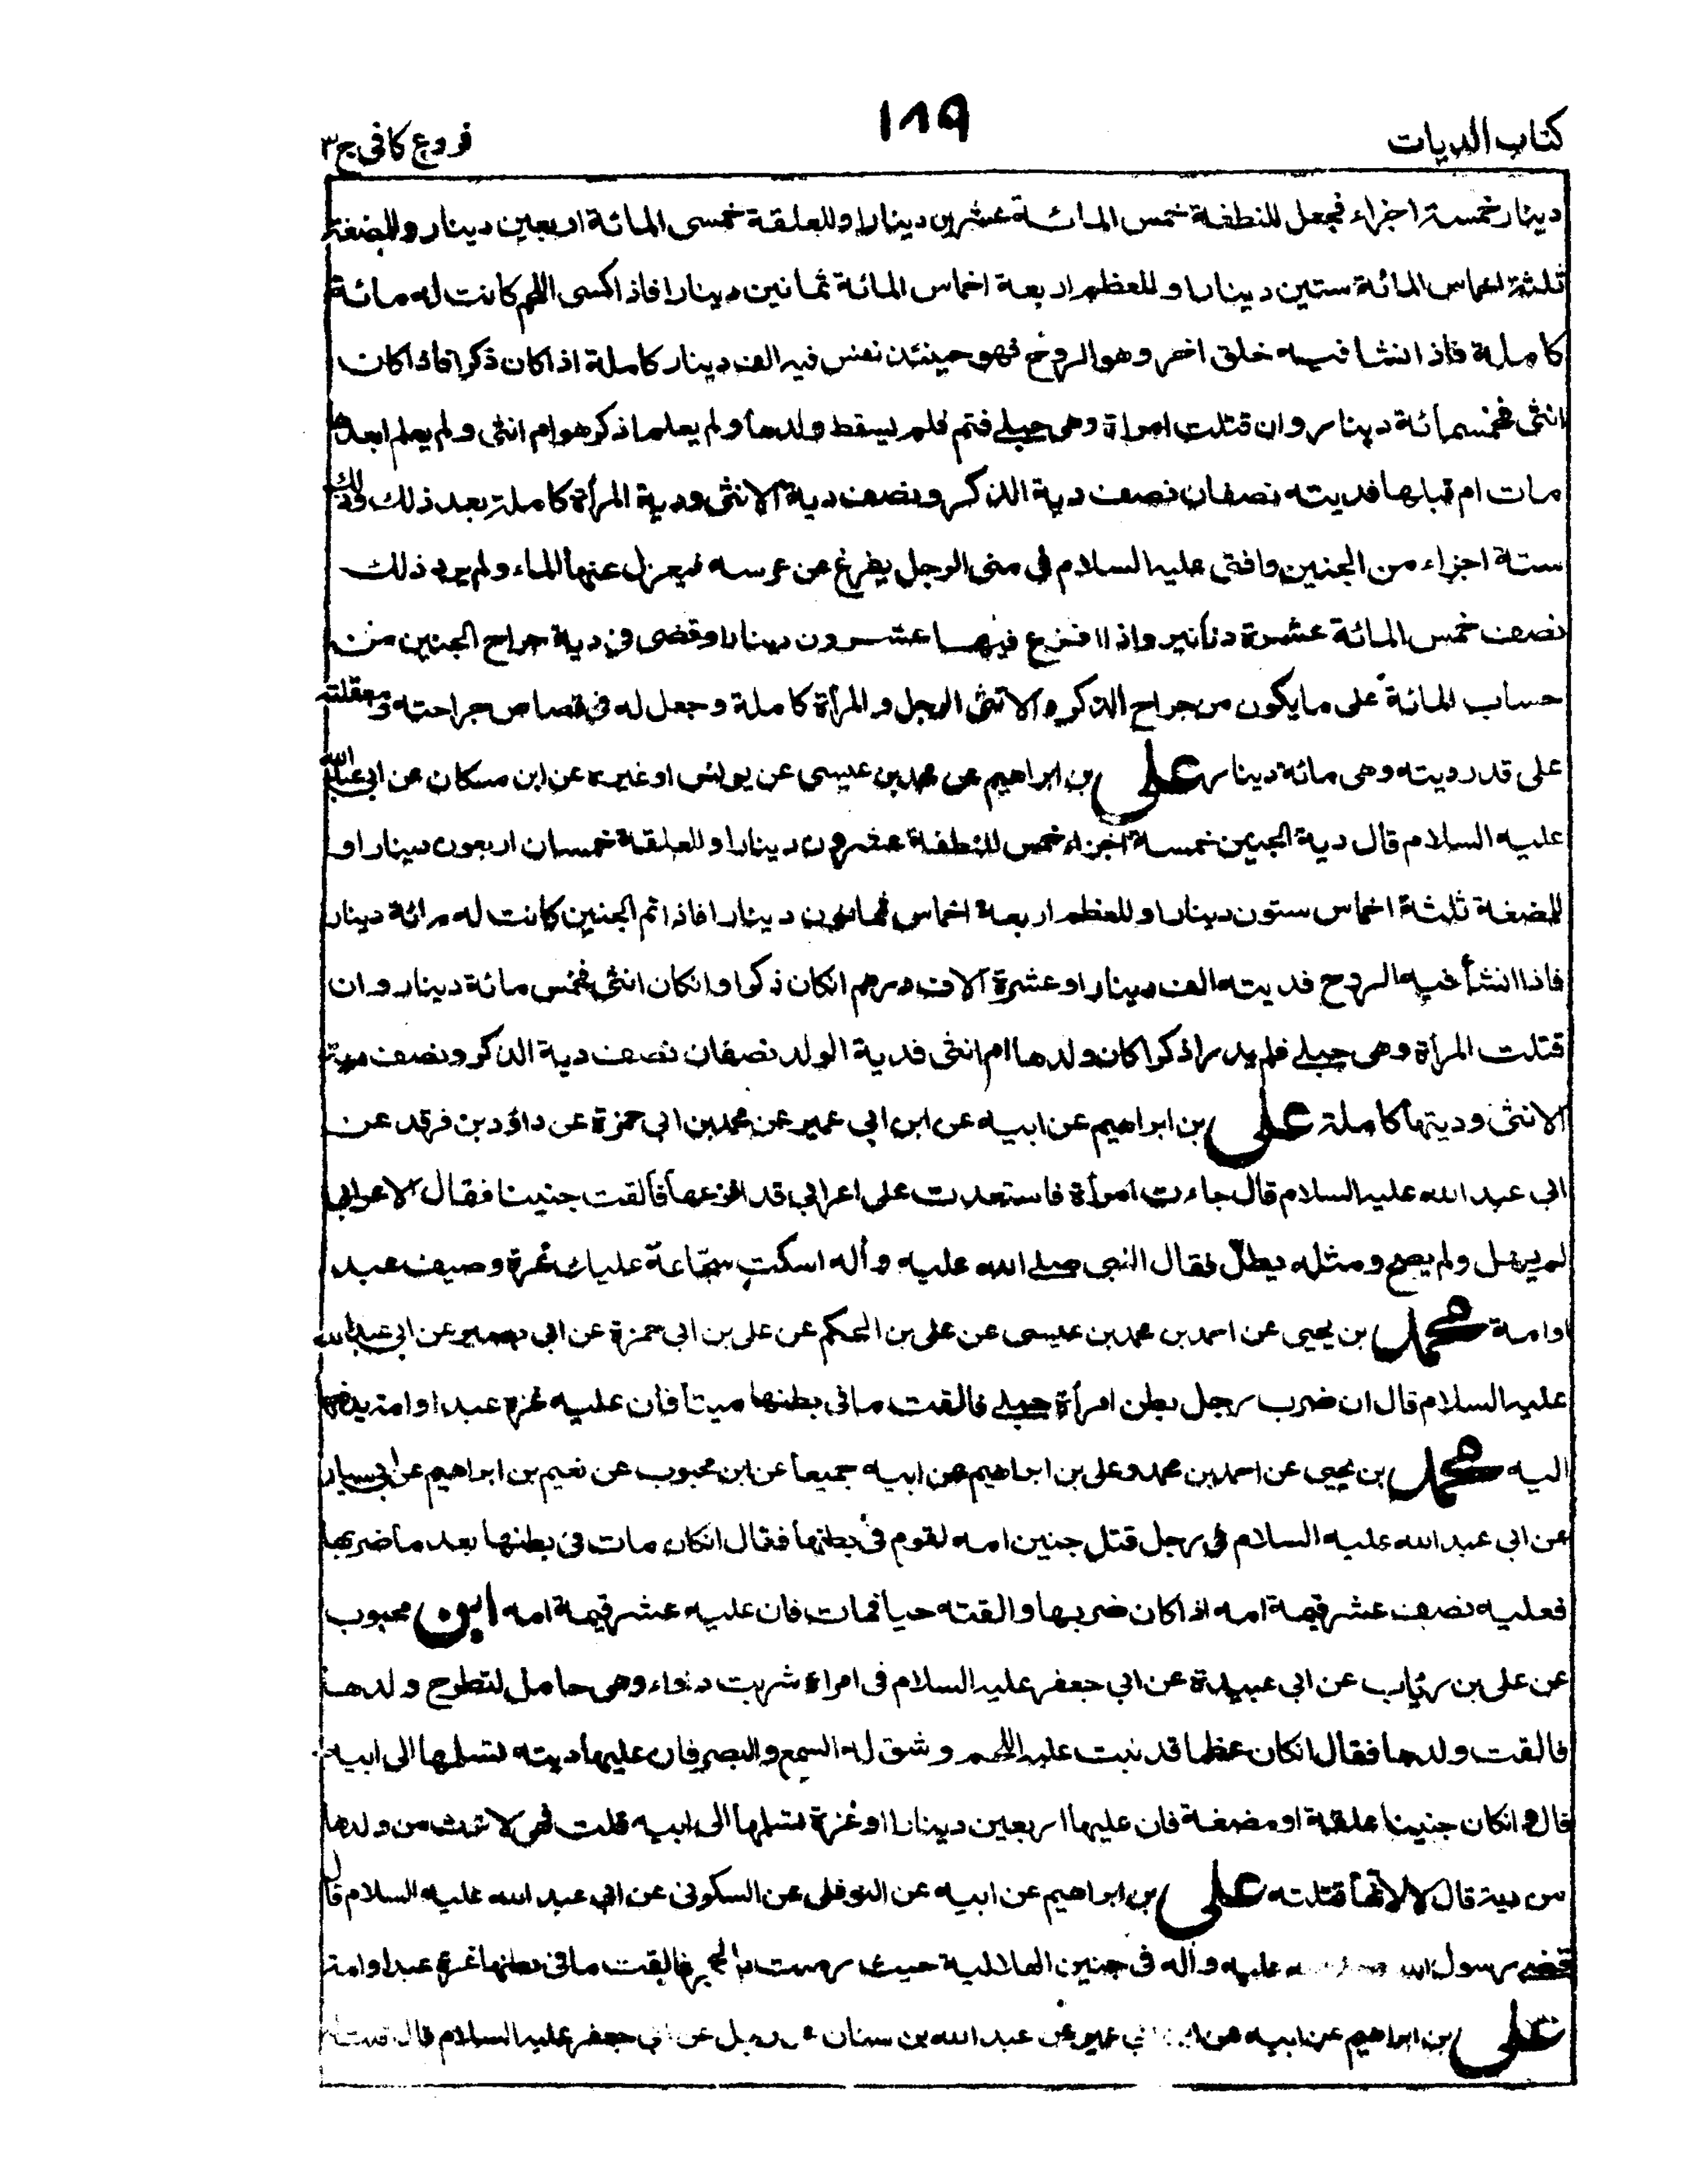 كتاب الديات
١٨٩
فروع كافى ج٣
دينار خمسة اجزاء فجعل للنطفة خمس المائة عشرين دينارا وللعلقة خمسى المائة اربعين دينار وللمضغة
ثلثة اخماس المائة ستين دينارا وللعظم اربعة اخماس المائة ثمانين دينارا فاذا اكسى اللحم كانت له مائة
كاملة فاذا انشا فيه خلق اخر وهو الروح فهو حينئذ نفس فيه الف دينار كاملة اذا كان ذكرا فاذا كان
انثى فخمسمائة دينار وان قتلت امراة وهى حبلے فتم فلم يسقط ولدها ولم يعلم اذكر هو ام انثى ولم يعلم ابعدها
مات ام قبلها فديته نصفان نصف دية الذكر ونصف دية الانثى ودية المرأة كاملة بعد ذلك وذلك
ستة اجزاء من الجنين وافتى عليه السلام فى منى الرجل يفرغ عن عرسه فيعزل عنها الماء ولم يرد ذلك
نصف خمس المائة عشرة دنانير واذا افرغ فيها عشرون دينارا وقضى فى دية جراح الجنين من
حساب المائة على ما يكون من جراح الذكر والانثى الرجل والمرأة كاملة وجعل له فى قصاص جراحته ومعقلته
على قدر ديته وهى مائة دينار على بن ابراهيم عن محمد بن عيسى عن يونس او غيره عن ابن مسكان عن ابى عبد الله
عليه السلام قال دية الجنين خمسة اجزاء خمس للنطفة عشرون دينارا وللعلقة خمسان اربعون دينارا و
للمضغة ثلثة اخماس ستون دينارا وللعظم اربعة اخماس ثمانون دينارا فاذا تم الجنين كانت له مائة دينار
فاذا انشأ فيه الروح فديته الف دينار او عشرة آلاف درهم انكان ذكرا وانكان انثى فخمس مائة دينار وان
قتلت المرأة وهى حبلے فلم يدر اذكرا كان ولدها ام انثى فدية الولد نصفان نصف دية الذكر ونصف دية
الانثى وديتها كاملة على بن ابراهيم عن ابيه عن ابن ابي عمير عن محمد بن ابى حمزة عن داؤد بن فرقد عن
ابى عبد الله عليه السلام قال جاءت امرأة فاستعدت على اعرابي قد افزعها فألقت جنينا فقال الاعرابى
لم يهل ولم يصح ومثله يطلّ فقال النبى صلے الله عليه وأله اسكت سجّاعة عليك غرة وصيف عبد
اوامة محمد بن يحيى عن احمد بن محمد بن عيسى عن على بن الحكم عن على بن ابى حمزة عن ابى بصير عن ابى عبد الله
عليه السلام قال ان ضرب رجل بطن امرأة حبلے فالقت ما فى بطنها ميتا فان عليه غرة عبد او امة يدفعها
اليه محمد بن يحيى عن احمد بن محمد وعلى بن ابراهيم عن ابيه جميعا عن ابن محبوب عن نعيم بن ابراهيم عن ابى سيار
عن ابى عبد الله عليه السلام فى رجل قتل جنين امه لقوم فى بطنها فقال انكان مات فى بطنها بعد ما ضربها
فعليه نصف عشر قيمة امه اذا كان ضربها والقته حيا فمات فان عليه عشر قيمة امه ابن محبوب
عن على بن رئاب عن ابى عبيدة عن ابي جعفر عليه السلام فى امراة شربت دواء وهى حامل لتطرح ولدها
فالقت ولدها فقال انكان عظما قد نبت عليه اللحم وشق له السمع والبصر فان عليها ديته تسلمها الى ابيه
قال وانكان جنينا علقة او مضغة فان عليها اربعين دينارا او غرة تسلمها الى ابيه قلت فهى لا ترث من ولدها
من ديته قال لا لانها قتلته على بن ابراهيم عن ابيه عن النوفلى عن السكونى عن ابى عبد الله عليه السلام قال
قضى رسول الله عليه وأله فى جنين الهلالية حيث رميت بالحجر فالقت ما فى بطنها غرة عبد او امة
على بن ابراهيم عن ابيه عن ابن ابى عمير عن عبد الله بن سنان عن رجل عن ابى جعفر عليه السلام قال قلت